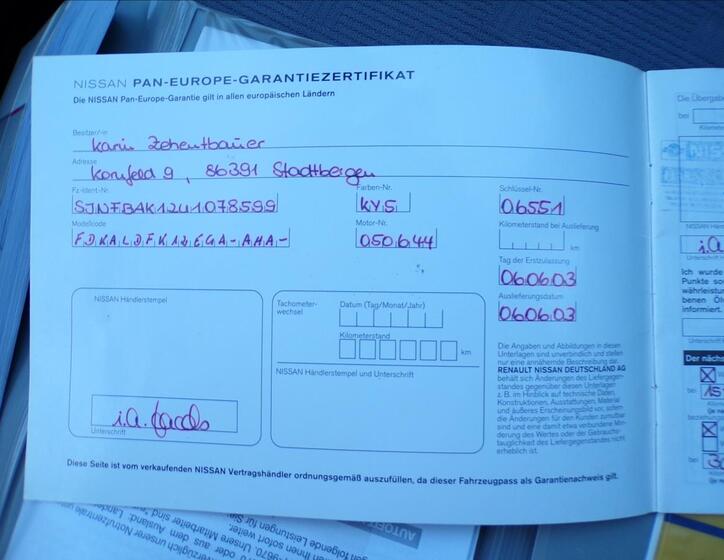 NISSAN PAN-EUROPE-GARANTIEZERTIFIKAT
Die NISSAN Pan-Europe-Garantie gilt in allen europäischen Ländern
Besitzer/-in
Karin Zehentbauer
Adresse
Kornfeld 9, 86391 Stadtbergen
Fz.-Ident-Nr.
SJNFBAK12U1078599
Farben-Nr.
KY5
Schlüssel-Nr.
06551
Modellcode
FDKALDFK12EGA-AHA-
Motor-Nr.
050644
Kilometerstand bei Auslieferung
km
Tag der Erstzulassung
06.06.03
Auslieferungsdatum
06.06.03
NISSAN Händlerstempel
i.A. Jacobs
Unterschrift
Tachometer-
wechsel
Datum (Tag/Monat/Jahr)
Kilometerstand
km
NISSAN Händlerstempel und Unterschrift
Die Angaben und Abbildungen in diesen
Unterlagen sind unverbindlich und stellen
nur eine annähernde Beschreibung dar.
RENAULT NISSAN DEUTSCHLAND AG
behält sich Änderungen des Liefergegen-
standes gegenüber diesen Unterlagen
z. B. im Hinblick auf technische Daten,
Konstruktionen, Ausstattungen, Material
und äußeres Erscheinungsbild vor, sofern
die Änderungen für den Kunden zumutbar
sind und eine damit etwa verbundene Min-
derung des Wertes oder der Gebrauchs-
tauglichkeit des Liefergegenstandes nicht
erheblich ist.
Diese Seite ist vom verkaufenden NISSAN Vertragshändler ordnungsgemäß auszufüllen, da dieser Fahrzeugpass als Garantienachweis gilt.
Die Übergabe
bei
i.A.
Unterschrift
Ich wurde
Punkte so
währleistu
benen Öl
informiert.
Der nächs
bei 15
bei 30